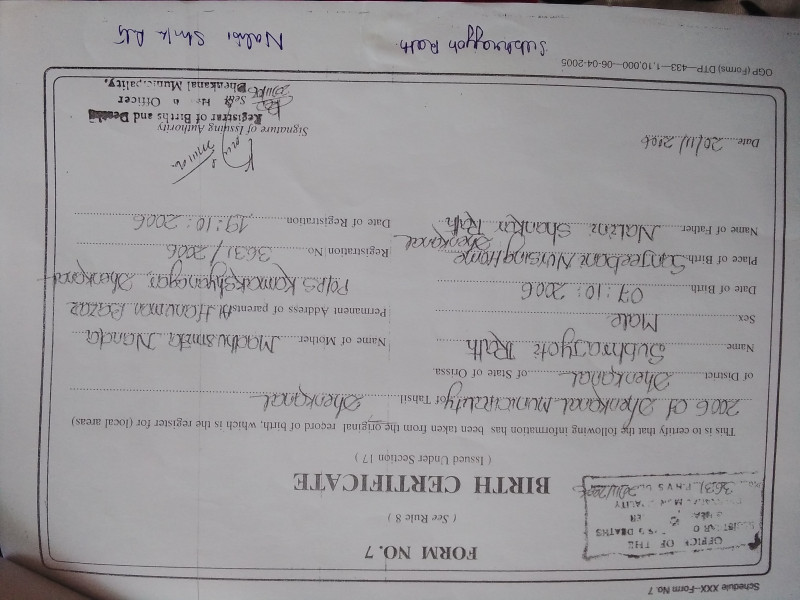 Schedule XXX—Form No. 7
OFFICE OF THE
DEATHS
3631
20/11/2006
FORM NO. 7
( See Rule 8 )
BIRTH CERTIFICATE
( Issued Under Section 17 )
This is to certify that the following information has been taken from the original record of birth, which is the register for (local areas)
2006 of Dhenkanal Municipality of Tahsil Dhenkanal
of District Dhenkanal of State of Orissa.
Name Subhrajyoti Rath
Name of Mother Madhusmita Nanda
Sex Male
Permanent Address of parents At Hanuman Bazar
Date of Birth 07:10:2006
Po/P.S Kamakshyanagar, Dhenkanal
Place of Birth Sanjeebani Nursing Home Dhenkanal
Registration No. 3631/2006
Name of Father Nalini Shankar Rath
Date of Registration 19:10:2006
Date 20/11/2006
Signature of Issuing Authority
Registrar of Births and Deaths
Officer
Dhenkanal Municipality.
20/11/06
OGP (Forms) DTP—433—1,10,000—06-04-2005
Subhrajyoti Rath